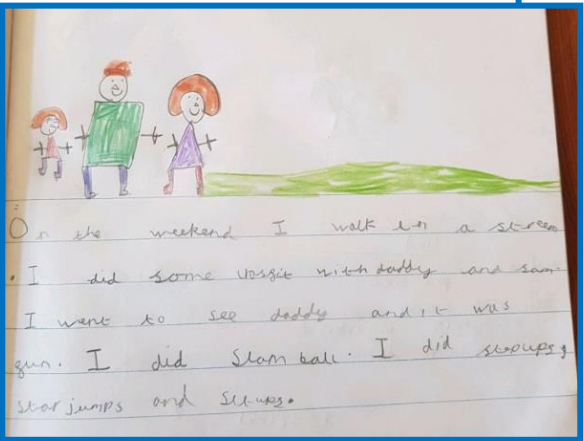 On the weekend I walk in a stream
. I did some with daddy and sam.
I went to see daddy and it was
gun. I did Slam ball. I did stepups,
star jumps and situps.